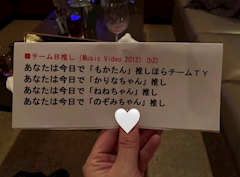 ■チーム日推し (Music Video 2012) (b2)
あなたは今日で「もかたん」推しほらチームTY
あなたは今日で「かりなちゃん」推し
あなたは今日で「ねねちゃん」推し
あなたは今日で「のぞみちゃん」推し